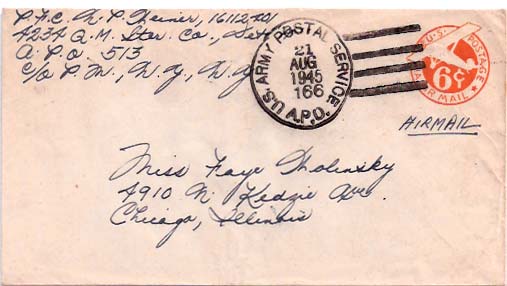 P.F.C. N. P. Weiner, 16112
4234 Q.M. Ster. Co.,
A.P.O. 513
C/O P.M., N.Y., N.Y.
U.S. ARMY POSTAL SERVICE
21
AUG
1945
166
A.P.O.
U.S. POSTAGE
6¢
AIR MAIL
AIRMAIL
Miss Faye Wolinsky
4910 N. Kedzie Ave.
Chicago, Illinois